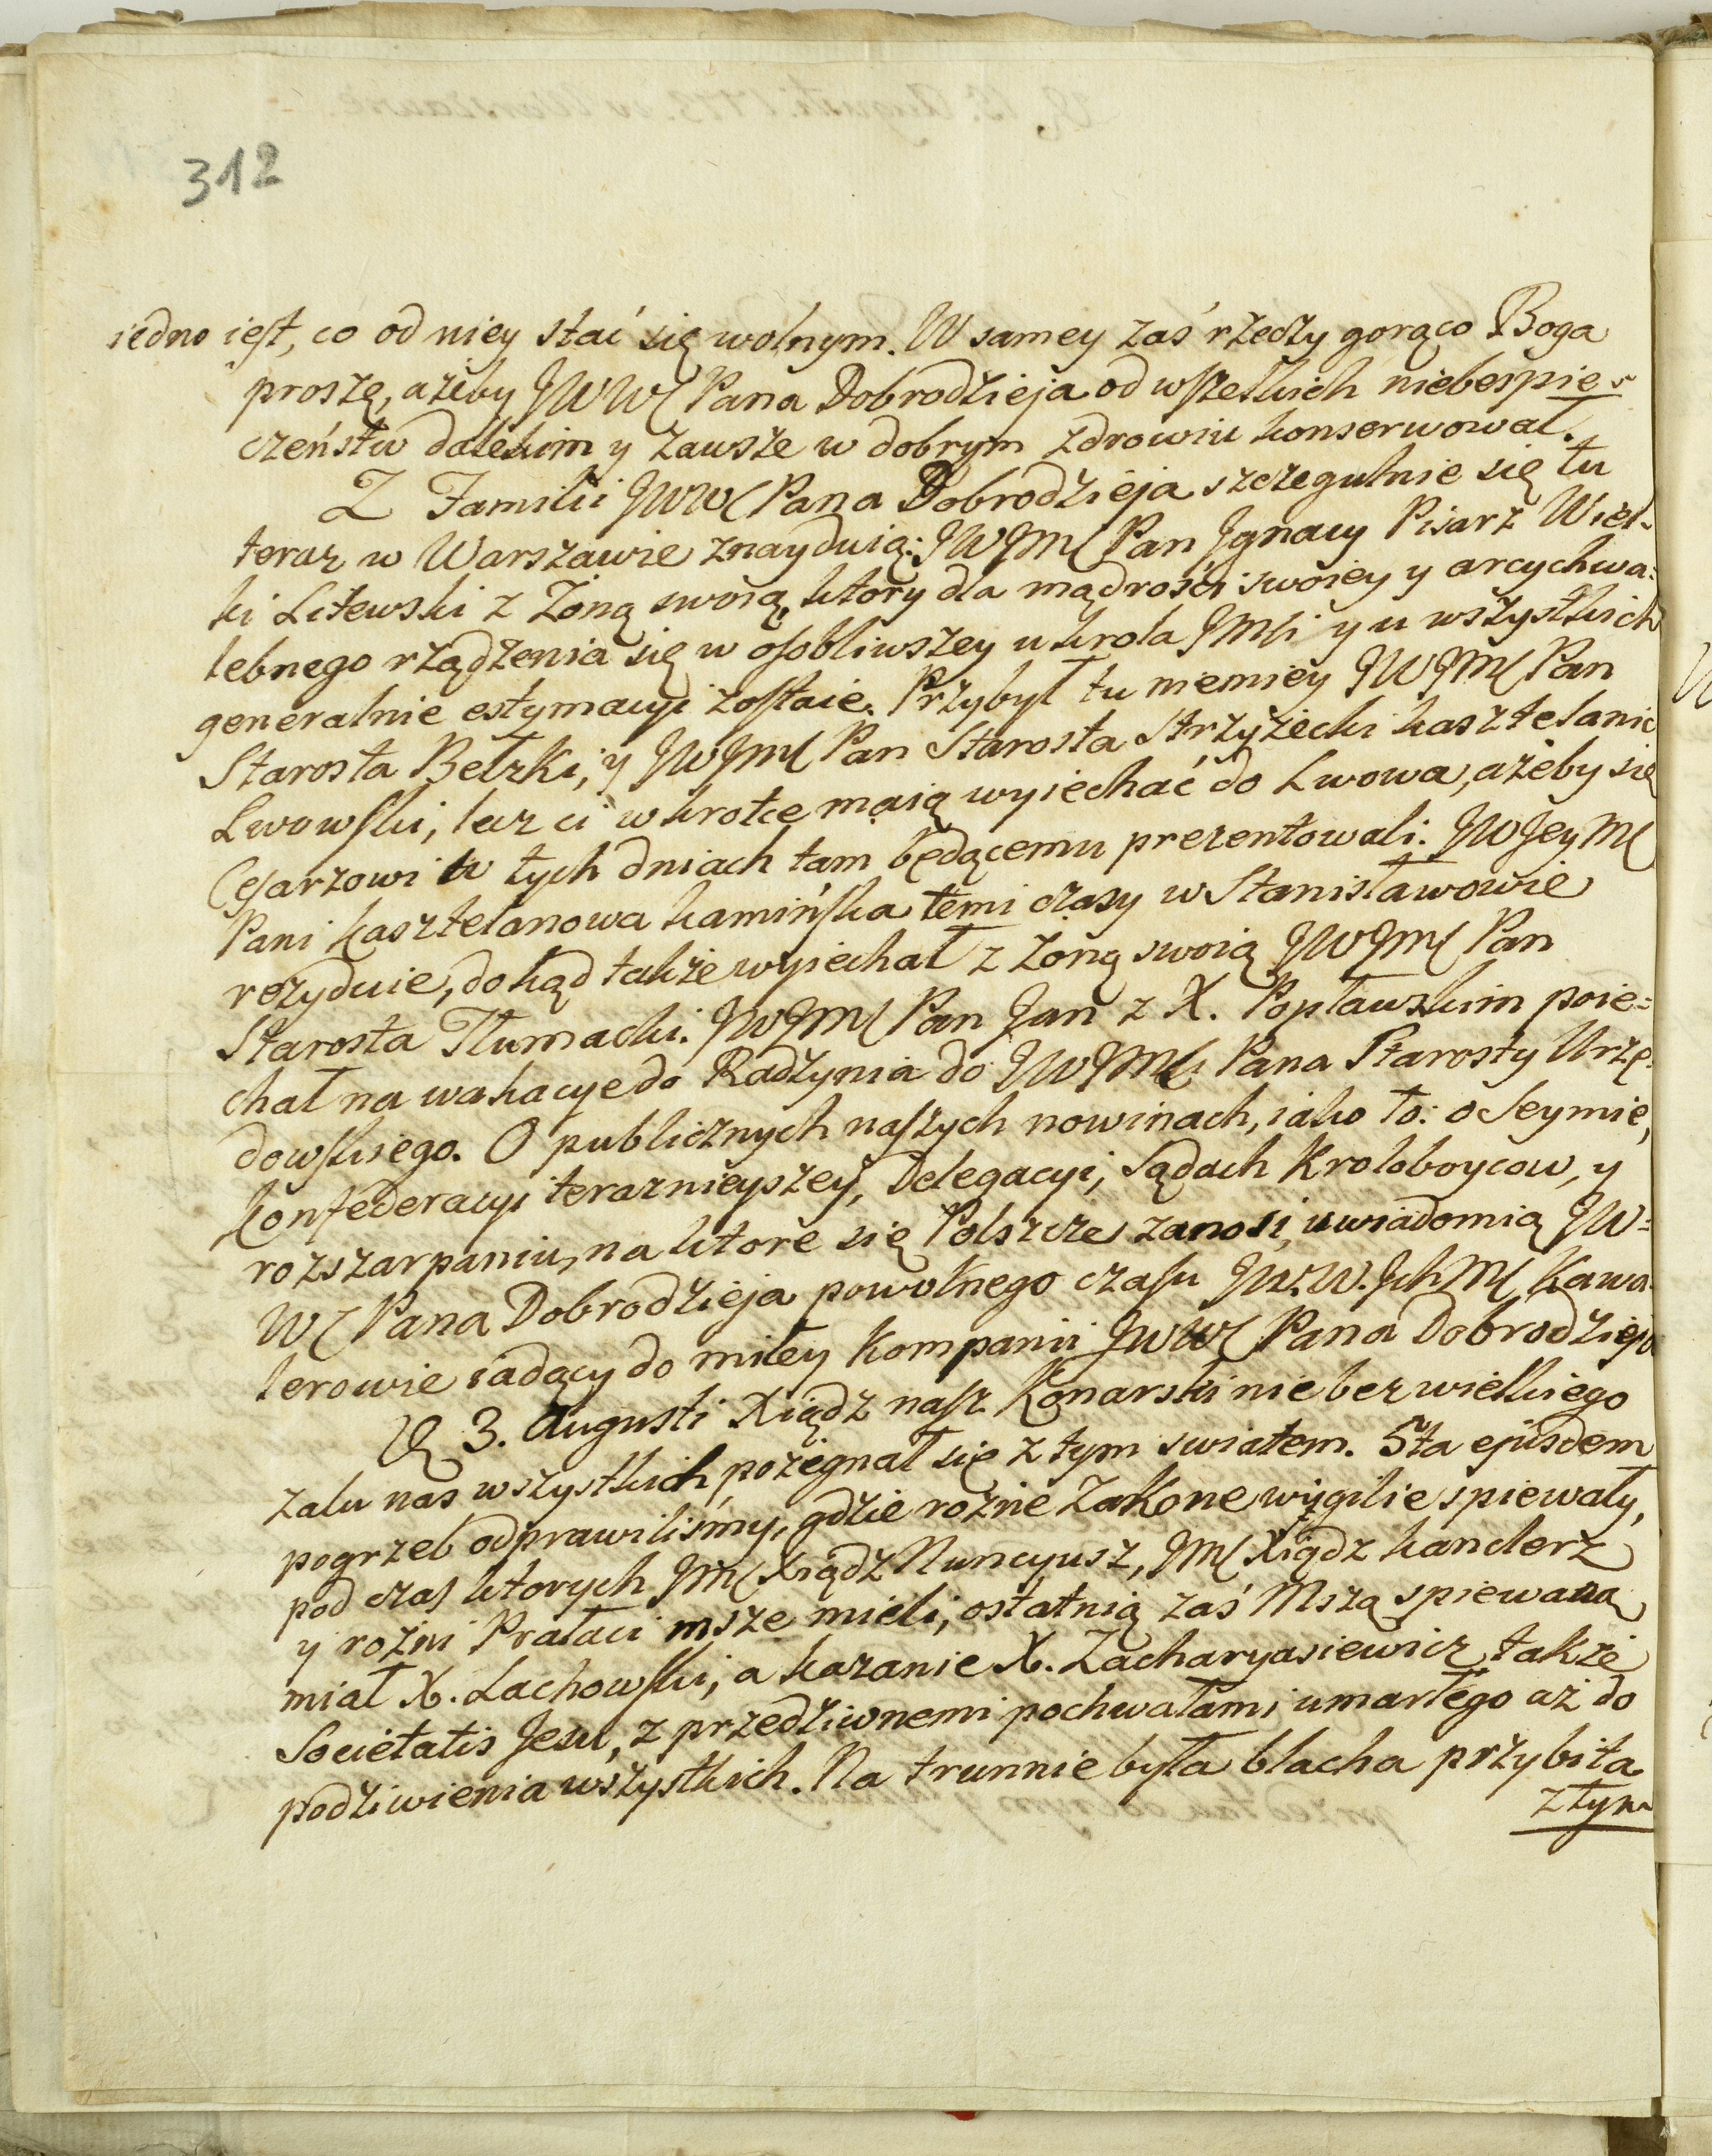 312
iedno iest, co od niey stać się wolnym. W samey zaś rzeczy gorąco Boga
proszę, ażeby JWW Pana Dobrodzieja od wszelkich niebespie-
czeństw dalekim y zawsze w dobrym zdrowiu konserwował.
Z Familii JWW Pana Dobrodzieja szczegulnie się tu
teraz w Warszawie znayduią: JWJM Pan Jgnacy Pisarz Wiel-
ki Litewski z Zoną swoią, ktory dla mądrości swoiey y arcychwa-
lebnego rządzenia się w osobliwszey u krola JMci y u wszystkich
generalnie estymacyi zostaie. Przybył tu niemiey JWJM Pan
Starosta Bełzki, y JWJM Pan Starosta Strzyżecki kasztelanic
Lwowski, lecz ci wkrotce maią wyiechać do Lwowa, ażeby się
Cesarzowi w tych dniach tam będącemu prezentowali. JWJeyM
Pani kasztelanowa kamińska temi czasy w Stanisławowie
rezyduie, dokąd także wyiechał z Zoną swoią JWJM Pan
Starosta Tłumacki. JWJM Pan Jan z X. Popławskim poie=
chał na wakacye do Radzynia do JWJM Pana Starosty Urzę-
dowskiego. O publicznych naszych nowinach, iako to: o Seymie,
konfederacyi teraznieyszey, Delegacyi, Sądach Kroloboycow, y
rozszarpaniu, na ktore się Polszcze zanosi, uwiadomią JW=
W Pana Dobrodzieja powolnego czasu JW.W.JchM Kawa-
lerowie iadący do miłey kompanii JWW Pana Dobrodzieja
D 3. Augusti Xiądz nasz Konarski nie bez wielkiego
zalu nas wszystkich, pożegnał się z tym swiatem. 5ta ejusdem
pogrzeb odprawilismy, gdzie rożne Zakone wigilie spiewały,
pod czas ktorych JM Xiądz Nuncyusz, JM Xiądz kanclerz
y rożni Prałaci msze mieli, ostatnią zaś Mszą spiewaną
miał X. Lachowski, a kazanie X. Zacharyasiewicz także
Societatis Jesu, z przedziwnemi pochwałami umarłego aż do
podziwienia wszystkich. Na trunnie była blacha przybita
z tym